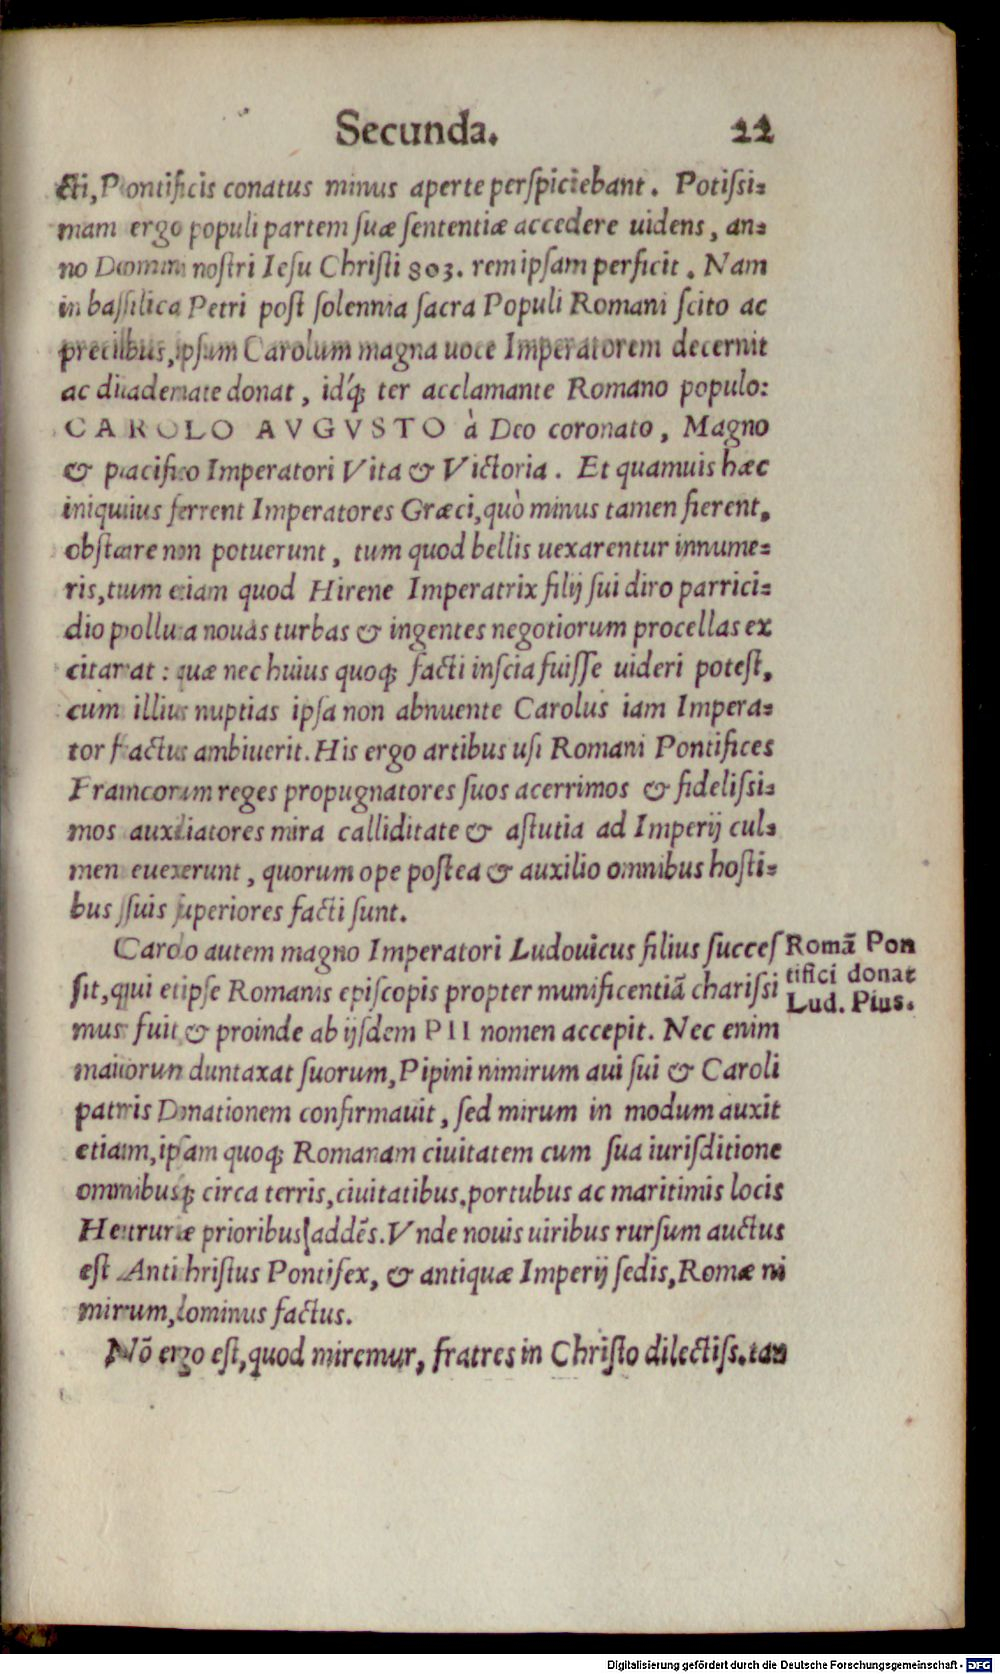 Secunda. 22
cti, Pontificis conatus minus aperte perſpiciebant. Potiſsi=
mam ergo populi partem ſuæ ſententiæ accedere uidens, an=
no Domini noſtri Ieſu Chriſti 803. rem ipſam perficit. Nam
in baſſilica Petri poſt ſolennia ſacra Populi Romani ſcito ac
precibus, ipſum Carolum magna uoce Imperatorem decernit
ac diademate donat, idq́; ter acclamante Romano populo:
CAROLO AVGVSTO à Deo coronato, Magno
& pacifico Imperatori Vita & Victoria. Et quamuis hæc
iniquius ferrent Imperatores Græci, quò minus tamen fierent,
obſtare non potuerunt, tum quod bellis uexarentur innume=
ris, tum etiam quod Hirene Imperatrix filij ſui diro parrici=
dio polluta nouas turbas & ingentes negotiorum procellas ex
citarat: quæ nec huius quoq; facti inſcia fuiſſe uideri poteſt,
cum illius nuptias ipſa non abnuente Carolus iam Impera=
tor factus ambiuerit. His ergo artibus uſi Romani Pontifices
Francorum reges propugnatores ſuos acerrimos & fideliſsi=
mos auxiliatores mira calliditate & aſtutia ad Imperij cul=
men euexerunt, quorum ope poſtea & auxilio omnibus hoſti=
bus ſuis ſuperiores facti ſunt.
Carolo autem magno Imperatori Ludouicus filius ſucceſ
ſit, qui et ipſe Romanis epiſcopis propter munificentiã chariſsi
mus fuit & proinde ab ijſdem PII nomen accepit. Nec enim
maiorum duntaxat ſuorum, Pipini nimirum aui ſui & Caroli
patris Donationem confirmauit, ſed mirum in modum auxit
etiam, ipſam quoq; Romanam ciuitatem cum ſua iuriſditione
omnibusq́; circa terris, ciuitatibus, portubus ac maritimis locis
Hetruriæ prioribus addēs. Vnde nouis uiribus rurſum auctus
eſt Antichriſtus Pontifex, & antiquæ Imperij ſedis, Romæ ni
mirum, dominus factus.
Nō ergo eſt, quod miremur, fratres in Chriſto dilectiſs. tan
Romã Pon
tifici donat
Lud. Pius.
Digitalisierung gefördert durch die Deutsche Forschungsgemeinschaft - DFG